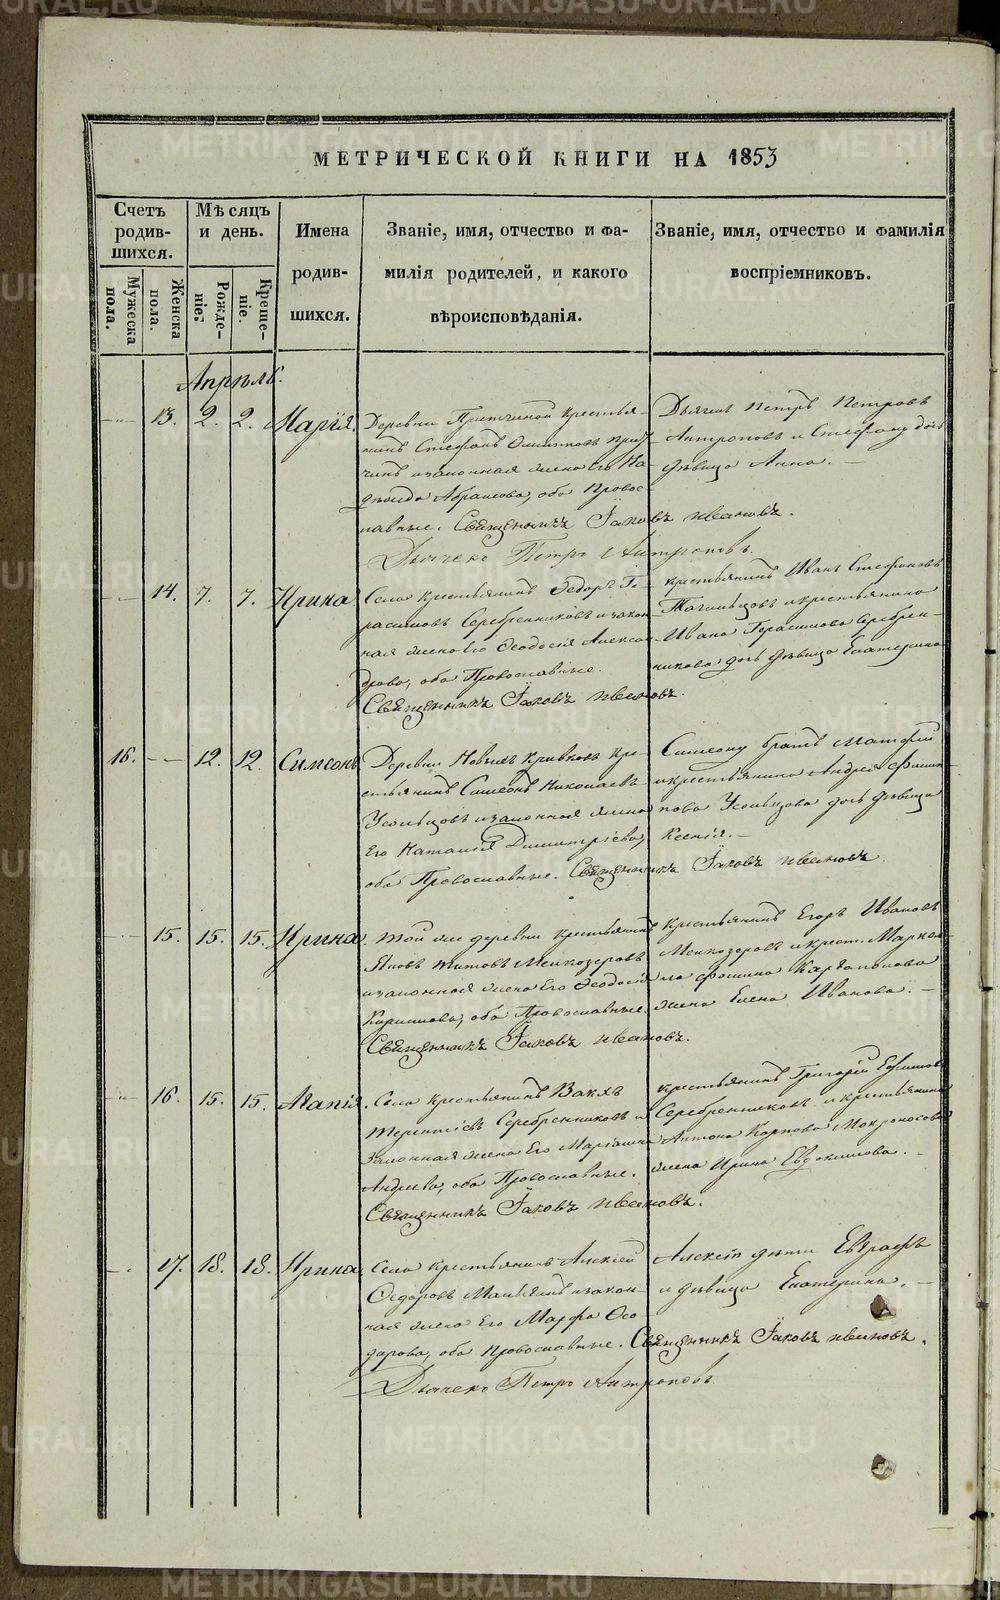 МЕТРИЧЕСКОЙ КНИГИ НА 1853
Счетъ родив-шихся.
Мужеска пола.
Женска пола.
Мѣсяцъ и день.
Рожде-ніе.
Креще-ніе.
Имена родив-шихся.
Званіе, имя, отчество и фа-
милія родителей, и какого
вѣроисповѣданія.
Званіе, имя, отчество и фамилія
воспріемниковъ.
Апрѣль.
13. 2. 2. Марія.
Деревни крестья-
нинъ Стефанъ
и законная жена Его На-
дѣжда Абрамова, оба Правос-
лавные. Священникъ Іаковъ Ивановъ.
Дьячекъ Петръ Антроповъ.
Дьячекъ Петръ Петровъ
Антроповъ и дочь
дѣвица Анна.
14. 7. 7. Ирина
Села крестьянинъ Ѳедоръ Ге-
расимовъ Серебренниковъ и закон-
ная жена Его Ѳеодосія Алексан-
дрова, оба Православные.
Священникъ Іаковъ Ивановъ.
крестьянинъ Иванъ Стефановъ
и крестьянина
Ивана Герасимова Серебрен-
никова дочь дѣвица Екатерина
16. 12. 12. Симеонъ
Деревни Новыхъ Кривковъ кре-
стьянинъ Симеонъ Николаевъ
Усольцовъ и законная жена
Его Наталія Димитріева,
оба Православные. Священникъ Іаковъ Ивановъ
Симеону братъ Матфей
и крестьянина Андрея Филип-
пова Усольцова дочь дѣвица
Ксенія.
15. 15. 15. Ирина.
той же деревни крестьянинъ
Яковъ Титовъ Мелкозеровъ
и законная жена Его Ѳеодосія
оба Православные.
Священникъ Іаковъ Ивановъ.
крестьянинъ Егоръ Ивановъ
Мелкозеровъ и крест.
Карѳаполова
жена Елена Иванова.
16. 15. 15. Агапія.
Села крестьянинъ
Терентіевъ Серебренниковъ и
законная жена Его
Андреева, оба Православные.
Священникъ Іаковъ Ивановъ.
крестьянинъ Григорій Ефимовъ
Серебренниковъ и крестьянина
Антона Карпова Мокроносова
жена Ирина Евдокимова.
17. 18. 18. Ирина
Села крестьянинъ Алексій
Ѳедоровъ и закон-
ная жена Его Марфа Ѳео-
дорова, оба Православные. Священникъ Іаковъ Ивановъ.
Дьячекъ Петръ Антроповъ
Алексія дѣти Евграфъ
и дѣвица Екатерина.
METRIKI.GASO-URAL.RU